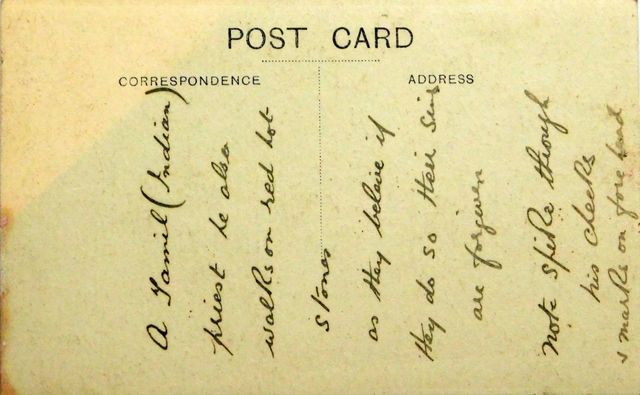 POST CARD
CORRESPONDENCE
ADDRESS
A Tamil (Indian)
priest he also
walks on red hot
stones
as they beleive if
they do so their sins
are forgiven
Note spike through
his cheeks
& marks on forehead